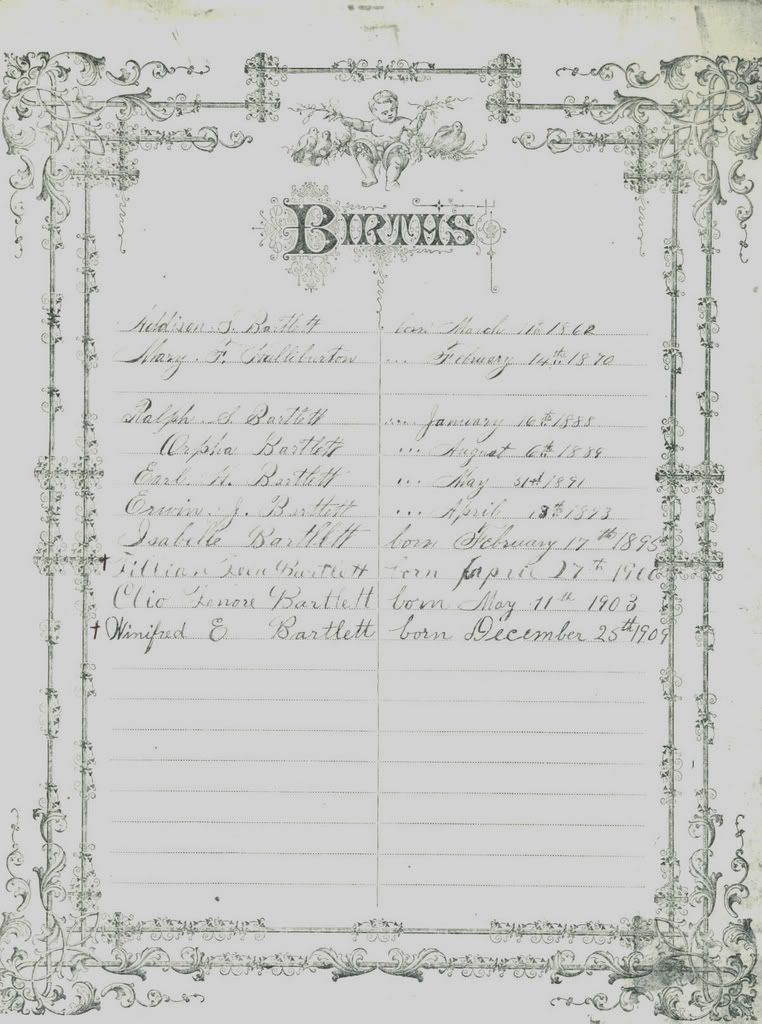 BIRTHS
Addison S. Bartlett born March 1862
Mary F. Halliburton " February 14th 1870
Ralph S. Bartlett " January 16th 1888
Orpha Bartlett " August 6th 1889
Earl H. Bartlett " May 31st 1891
Erwin J. Bartlett " April 13th 1893
Isabelle Bartlett born February 17th 1895
† Lillian Fern Bartlett born April 27th
Clio Lenore Bartlett born May 11th 1903
† Winifred E Bartlett born December 25th 1909